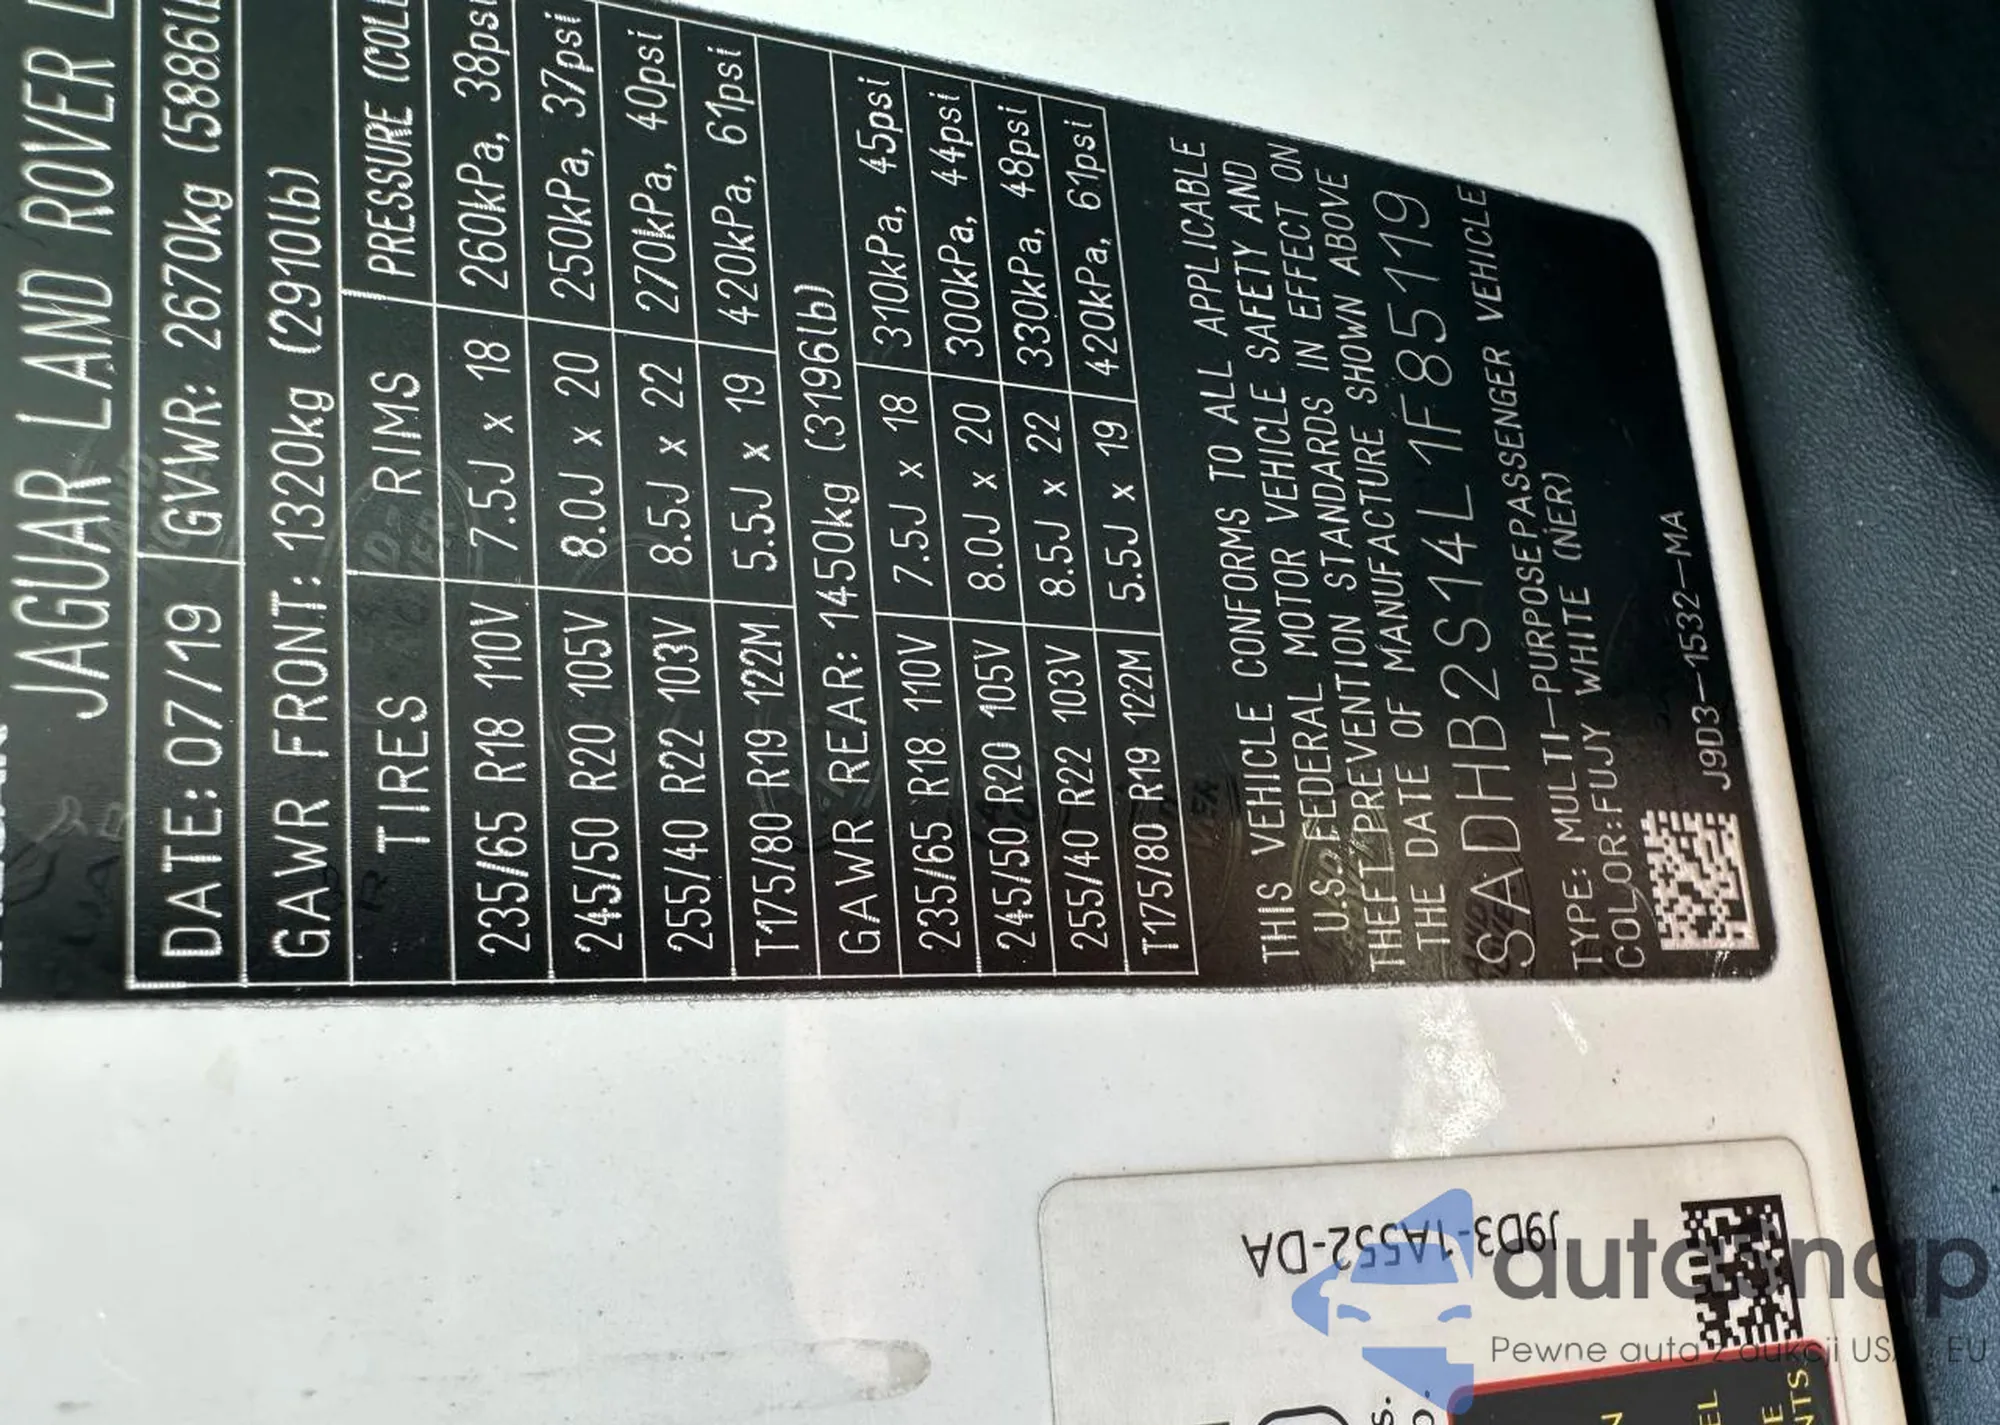 JAGUAR LAND ROVER
DATE: 07/19 GVWR: 2670kg (5886lb
GAWR FRONT: 1320kg (2910lb)
TIRES RIMS PRESSURE (COLD
235/65 R18 110V 7.5J x 18 260kPa, 38psi
245/50 R20 105V 8.0J x 20 250kPa, 37psi
255/40 R22 103V 8.5J x 22 270kPa, 40psi
T175/80 R19 122M 5.5J x 19 420kPa, 61psi
GAWR REAR: 1450kg (3196lb)
235/65 R18 110V 7.5J x 18 310kPa, 45psi
245/50 R20 105V 8.0J x 20 300kPa, 44psi
255/40 R22 103V 8.5J x 22 330kPa, 48psi
T175/80 R19 122M 5.5J x 19 420kPa, 61psi
THIS VEHICLE CONFORMS TO ALL APPLICABLE
U.S.FEDERAL MOTOR VEHICLE SAFETY AND
THEFT PREVENTION STANDARDS IN EFFECT ON
THE DATE OF MANUFACTURE SHOWN ABOVE
SADHB2S14L1F85119
TYPE: MULTI-PURPOSE PASSENGER VEHICLE
COLOR:FUJY WHITE (NER)
J9D3-1532-MA
J9D3-1A552-DA
autosnap
Pewne auta z aukcji USA EU